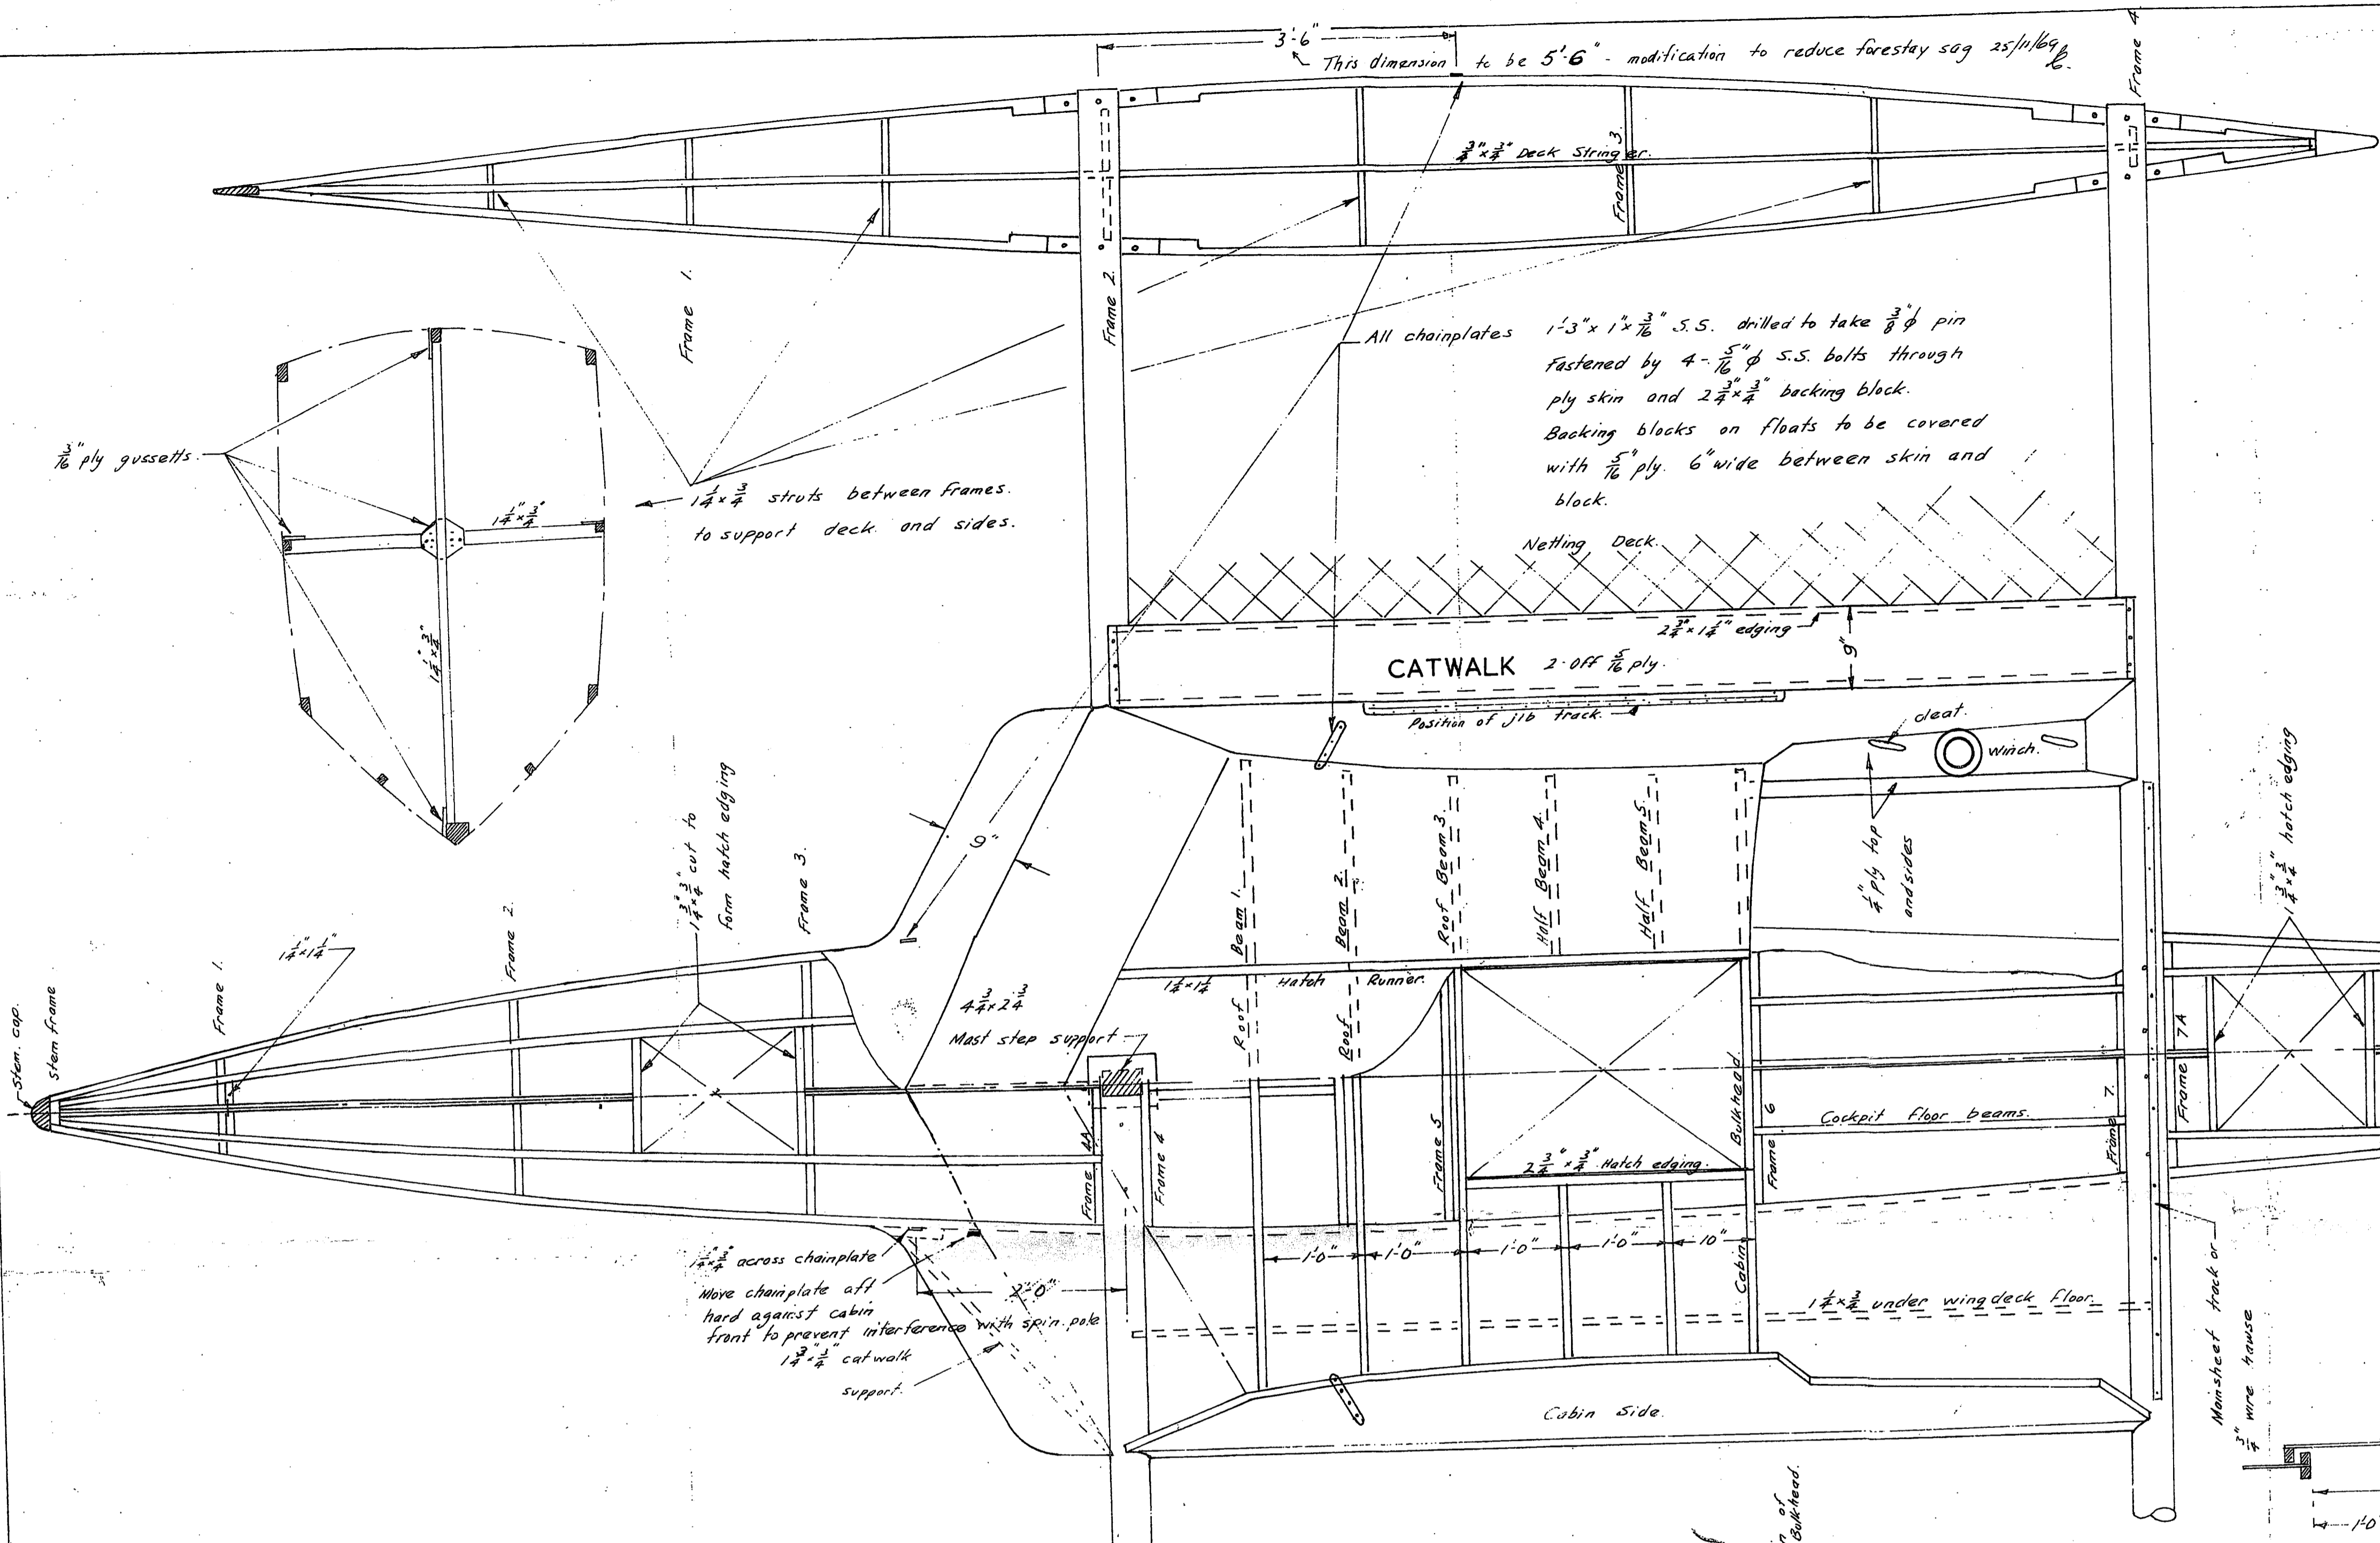 3'-6"
This dimension to be 5'-6" - modification to reduce forestay sag 25/11/69
Frame 4
3/4" x 3/4" Deck Stringer.
Frame 3.
Frame 1.
Frame 2.
All chainplates 1'-3" x 1" x 3/16" S.S. drilled to take 3/8" ϕ pin
Fastened by 4 - 5/16" ϕ S.S. bolts through
ply skin and 2 3/4" x 3/4" backing block.
Backing blocks on floats to be covered
with 5/16" ply. 6" wide between skin and
block.
3/16" ply gussetts.
1 1/4" x 3/4"
1 1/4" x 3/4"
1 1/4 x 3/4 struts between frames.
to support deck and sides.
Netting Deck.
2 3/4" x 1 1/4" edging
9"
CATWALK 2-off 5/16 ply.
Position of jib track.
cleat.
Winch.
1 3/4" x 3/4" hatch edging
1/4" ply top
and sides
1 3/4" x 3/4" cut to
form hatch edging
9"
Stem. cap.
Stem frame
Frame 1.
1 1/4" x 1 1/4"
Frame 2.
Frame 3.
Roof Beam 1.
Roof Beam 2.
Roof Beam 3.
Half Beam 4.
Half Beam 5.
1 1/4 x 1 1/4 Hatch Runner.
4 3/4 x 2 3/4
Mast step support
Frame 4A
Frame 4
Frame 5
2 3/4" x 3/4" Hatch edging.
Cabin Bulkhead
Frame 6
Cockpit floor beams.
Frame 7.
Frame 7A
1'-0" 1'-0" 1'-0" 1'-0" 10"
1 1/4" x 3/4" across chainplate
Move chainplate aft
hard against cabin
front to prevent interference with spin. pole
2'-0"
1 3/4" x 3/4" catwalk
support.
1 1/4 x 3/4 under wingdeck floor.
Cabin Side.
Mainsheet track or
3/4" wire hawse
Bulkhead.
of
1'-0